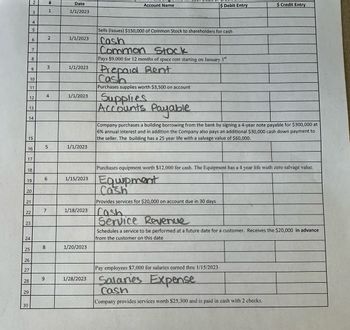 # Date Account Name $ Debit Entry $ Credit Entry
2
3 1 1/1/2023
4
5 Sells (Issues) $150,000 of Common Stock to shareholders for cash
6 2 1/1/2023 Cash
7 Common Stock
8 Pays $9,000 for 12 months of space rent starting on January 1st
9 3 1/1/2023 Prepaid Rent
10 Cash
11 Purchases supplies worth $3,500 on account
12 4 1/1/2023 Supplies
13 Accounts Payable
14
Company purchases a building borrowing from the bank by signing a 4-year note payable for $300,000 at
6% annual interest and in addition the Company also pays an additional $30,000 cash down payment to
15 the seller. The building has a 25 year life with a salvage value of $60,000.
16 5 1/1/2023
17
18 Purchases equipment worth $12,000 for cash. The Equipment has a 4 year life with zero salvage value.
19 6 1/15/2023 Equipment
20 Cash
21 Provides services for $20,000 on account due in 30 days
22 7 1/18/2023 Cash
23 Service Revenue
Schedules a service to be performed at a future date for a customer. Receives the $20,000 in advance
24 from the customer on this date
25 8 1/20/2023
26
27 Pay employees $7,000 for salaries earned thru 1/15/2023
28 9 1/28/2023 Salaries Expense
29 Cash
30 Company provides services worth $25,300 and is paid in cash with 2 checks.